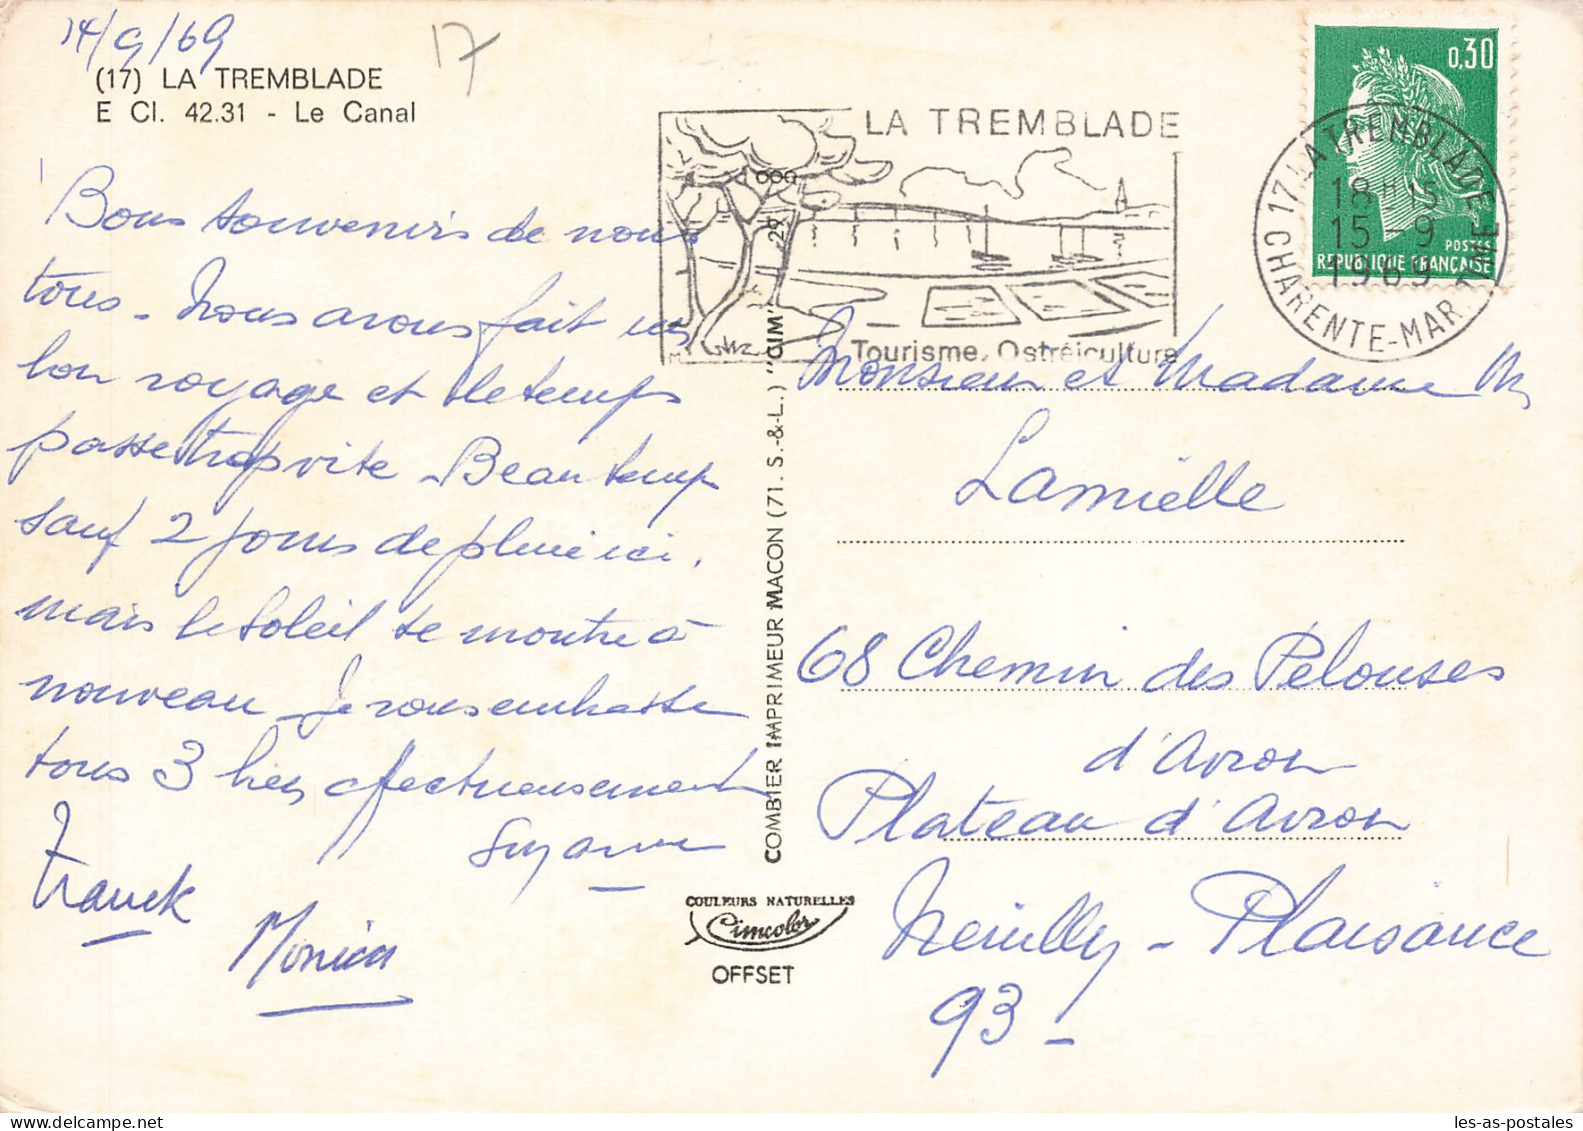 14/9/69
17
(17) LA TREMBLADE
E Cl. 42.31 - Le Canal
Bons souvenirs de nous
tous - Nous avons fait un
bon voyage et le temps
passe trop vite - Beau temps
sauf 2 jours de pluie ici,
mais le soleil se montre à
nouveau - Je vous embrasse
tous 3 bien affectueusement
Suzanne
Franck
Monica
COMBIER IMPRIMEUR MACON (71. S.-&-L.) "CIM"
COULEURS NATURELLES
Cimcolor
OFFSET
LA TREMBLADE
Tourisme, Ostréiculture
0,30
POSTES
REPUBLIQUE FRANÇAISE
17 LA TREMBLADE
18 H 15
15 - 9
1969
CHARENTE-MARITIME
Monsieur et Madame M
Lamielle
68 Chemin des Pelouses
d'Avron
Plateau d'Avron
Neuilly - Plaisance
93 -
les-as-postales